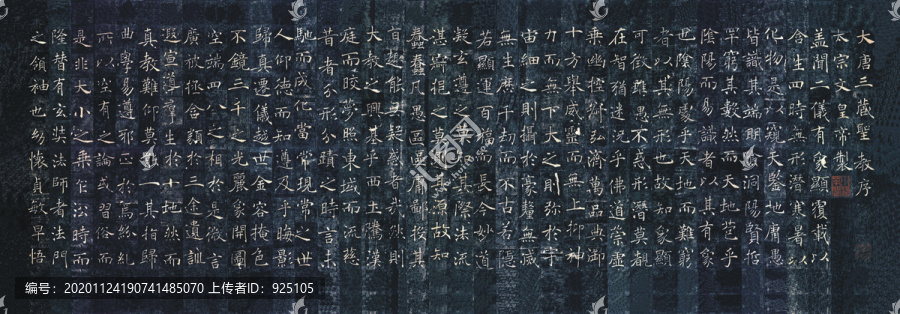 大唐三藏聖教序
太宗文皇帝製
盖聞二儀有象顯覆載以
含生四時無形潛寒暑以
化物是以窺天鑒地庸愚
皆識其端明陰洞陽賢哲
罕窮其數然而天地苞乎
陰陽而易識者以其有象
也陰陽處乎天地而難窮
者以其無形也故知象顯
可徵雖愚不惑形潛莫覩
在智猶迷況乎佛道崇虛
乘幽控寂弘濟萬品典御
十方舉威靈而無上抑神
力而無下大之則弥於宇
宙細之則攝於豪釐無滅
無生歷千劫而不古若隱
若顯運百福而長今妙道
凝玄遵之莫知其際法流
湛寂挹之莫測其源故知
蠢蠢凡愚區區庸鄙投其
旨趣能無疑惑者哉然則
大教之興基乎西土騰漢
庭而皎夢照東域而流慈
昔者分形分蹟之時言未
馳而成化當常現常之世
人仰德而知遵及乎晦影
歸真遷儀越世金容掩色
不鏡三千之光麗象開圖
空端四八之相於是微言
廣被拯含類於三途遺訓
遐宣導群生於十地然而
真教難仰莫能一其指歸
曲學易遵邪正於焉紛糺
所以空有之論或習俗而
是非大小之乘乍沿時而
隆替有玄奘法師者法門
之領袖也幼懷貞敏早悟
编号：20201124190741485070 上传者ID：925105